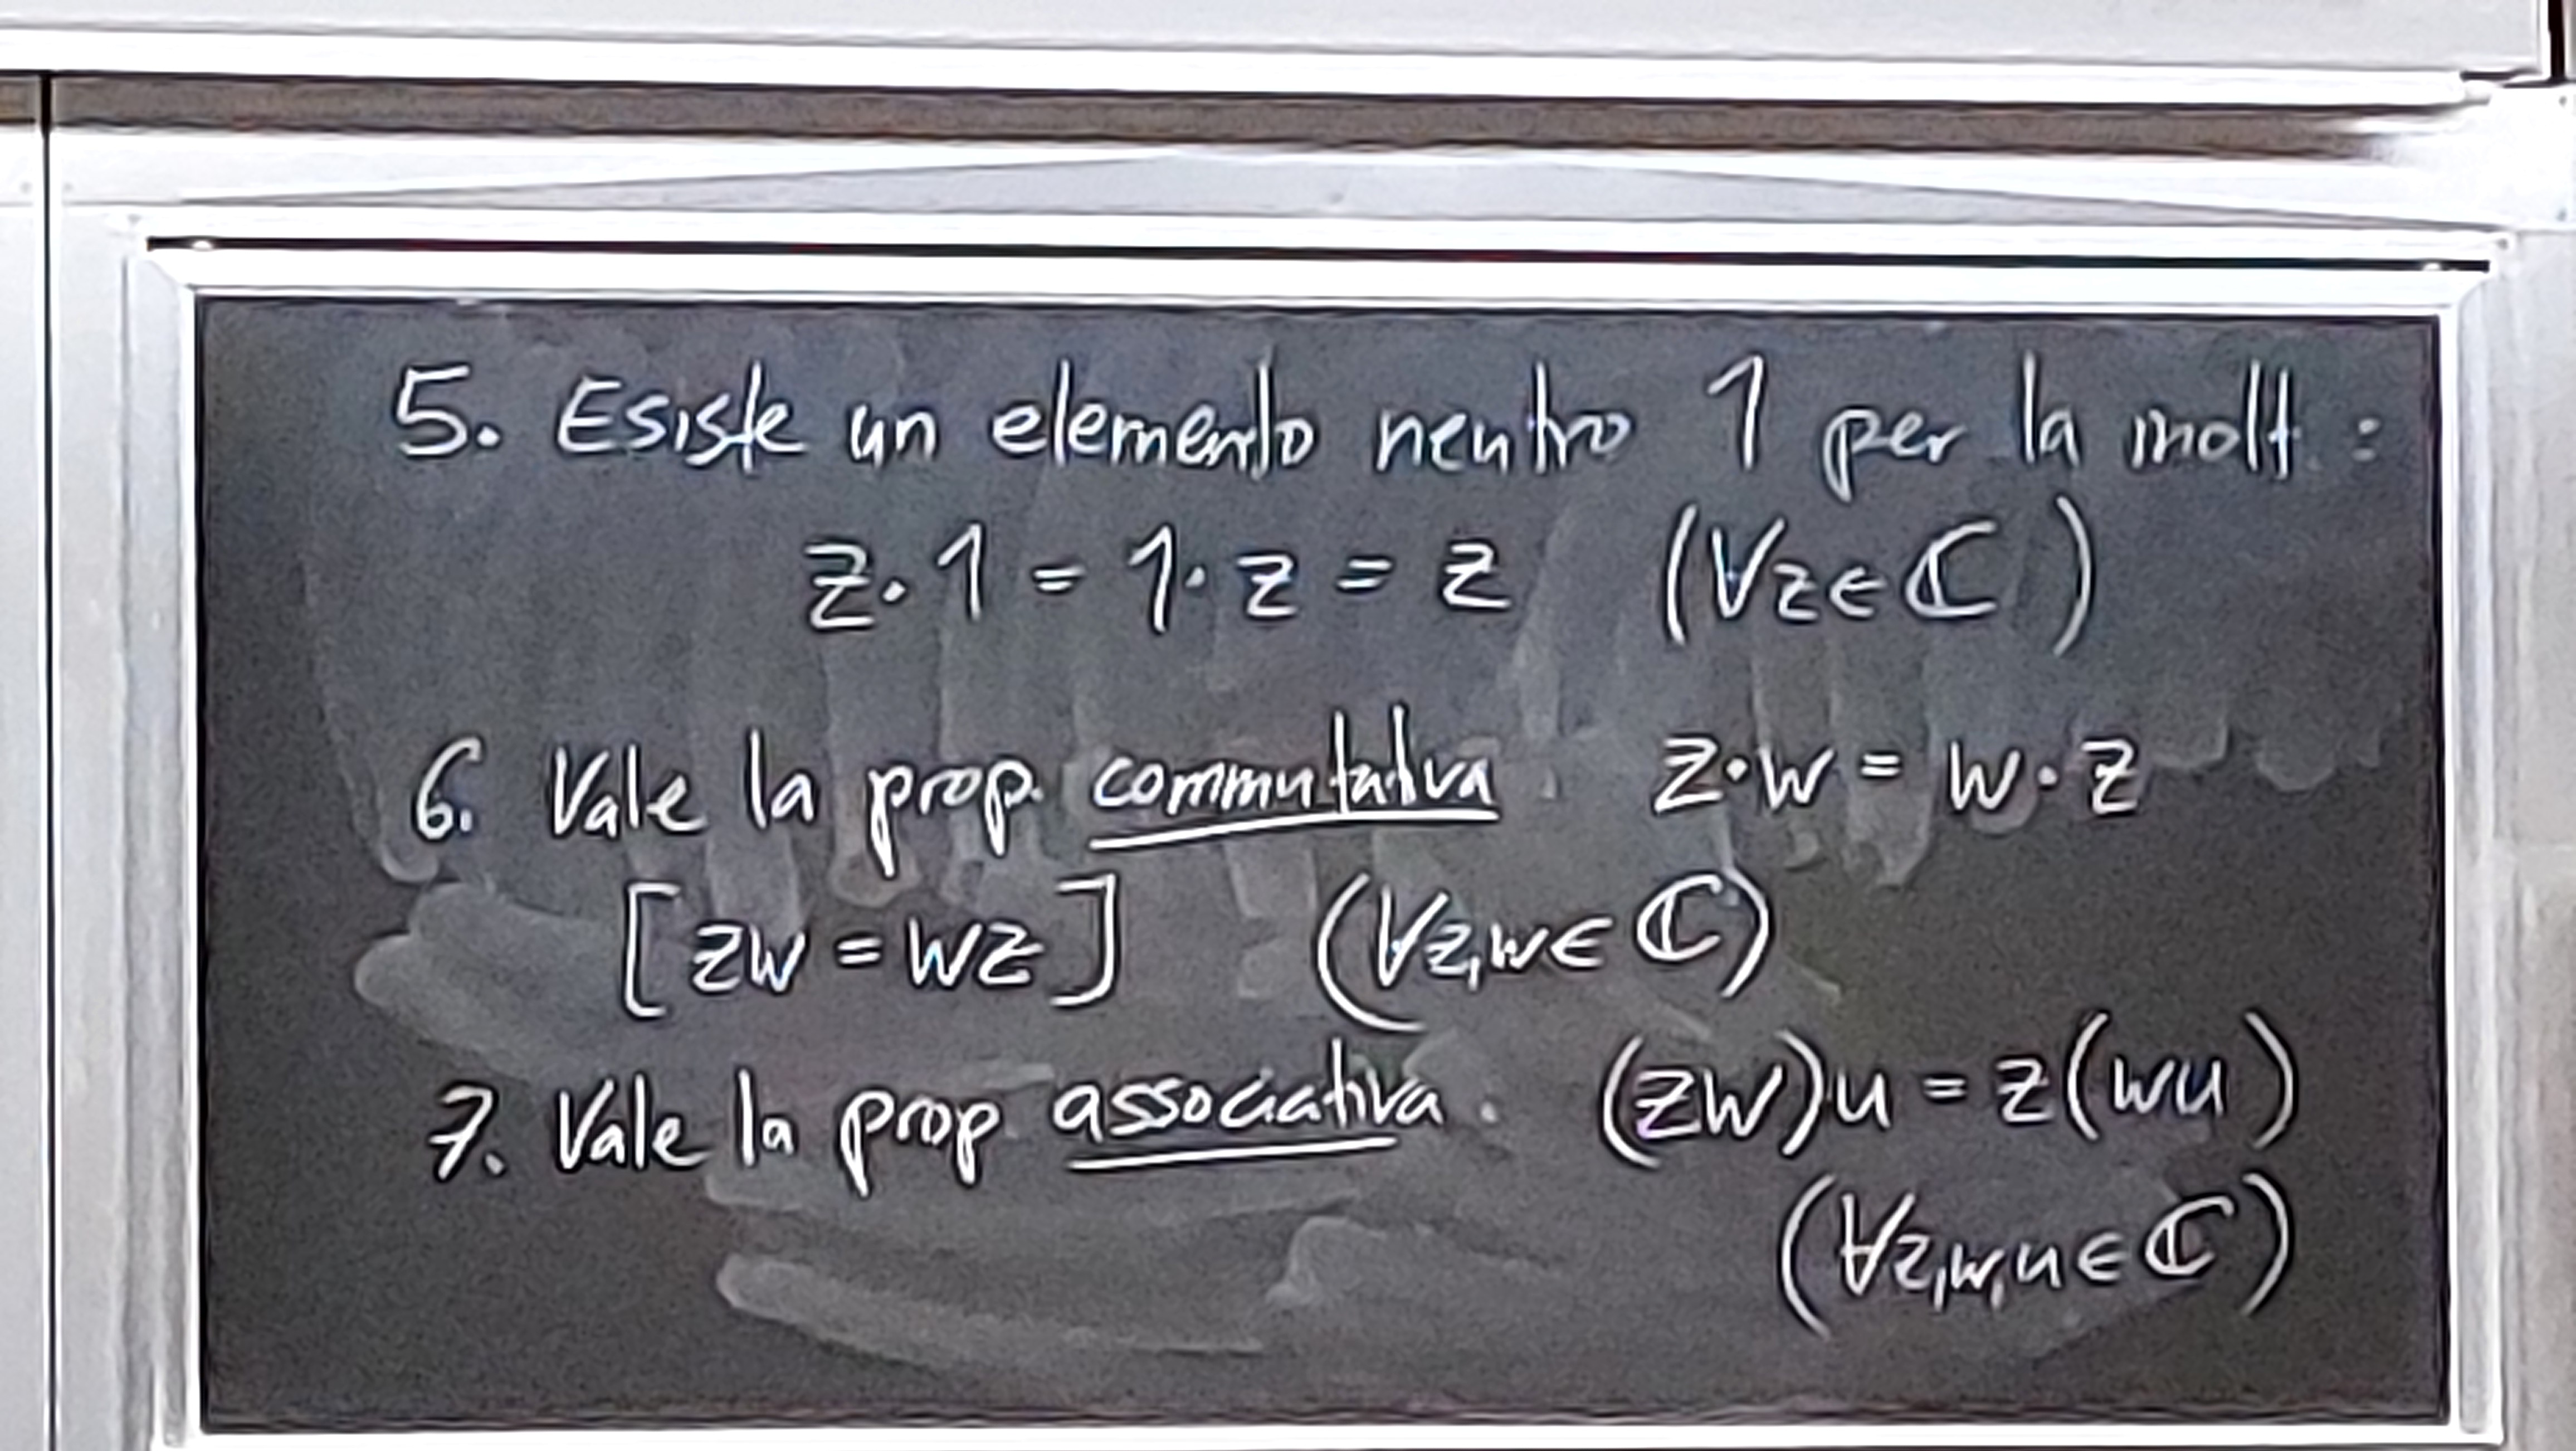 5. Esiste un elemento neutro 1 per la molt. :
z·1 = 1·z = z (∀z∈ℂ)
6. Vale la prop. commutativa. z·w = w·z
[zw = wz] (∀z,w∈ℂ)
7. Vale la prop associativa. (zw)u = z(wu)
(∀z,w,u∈ℂ)